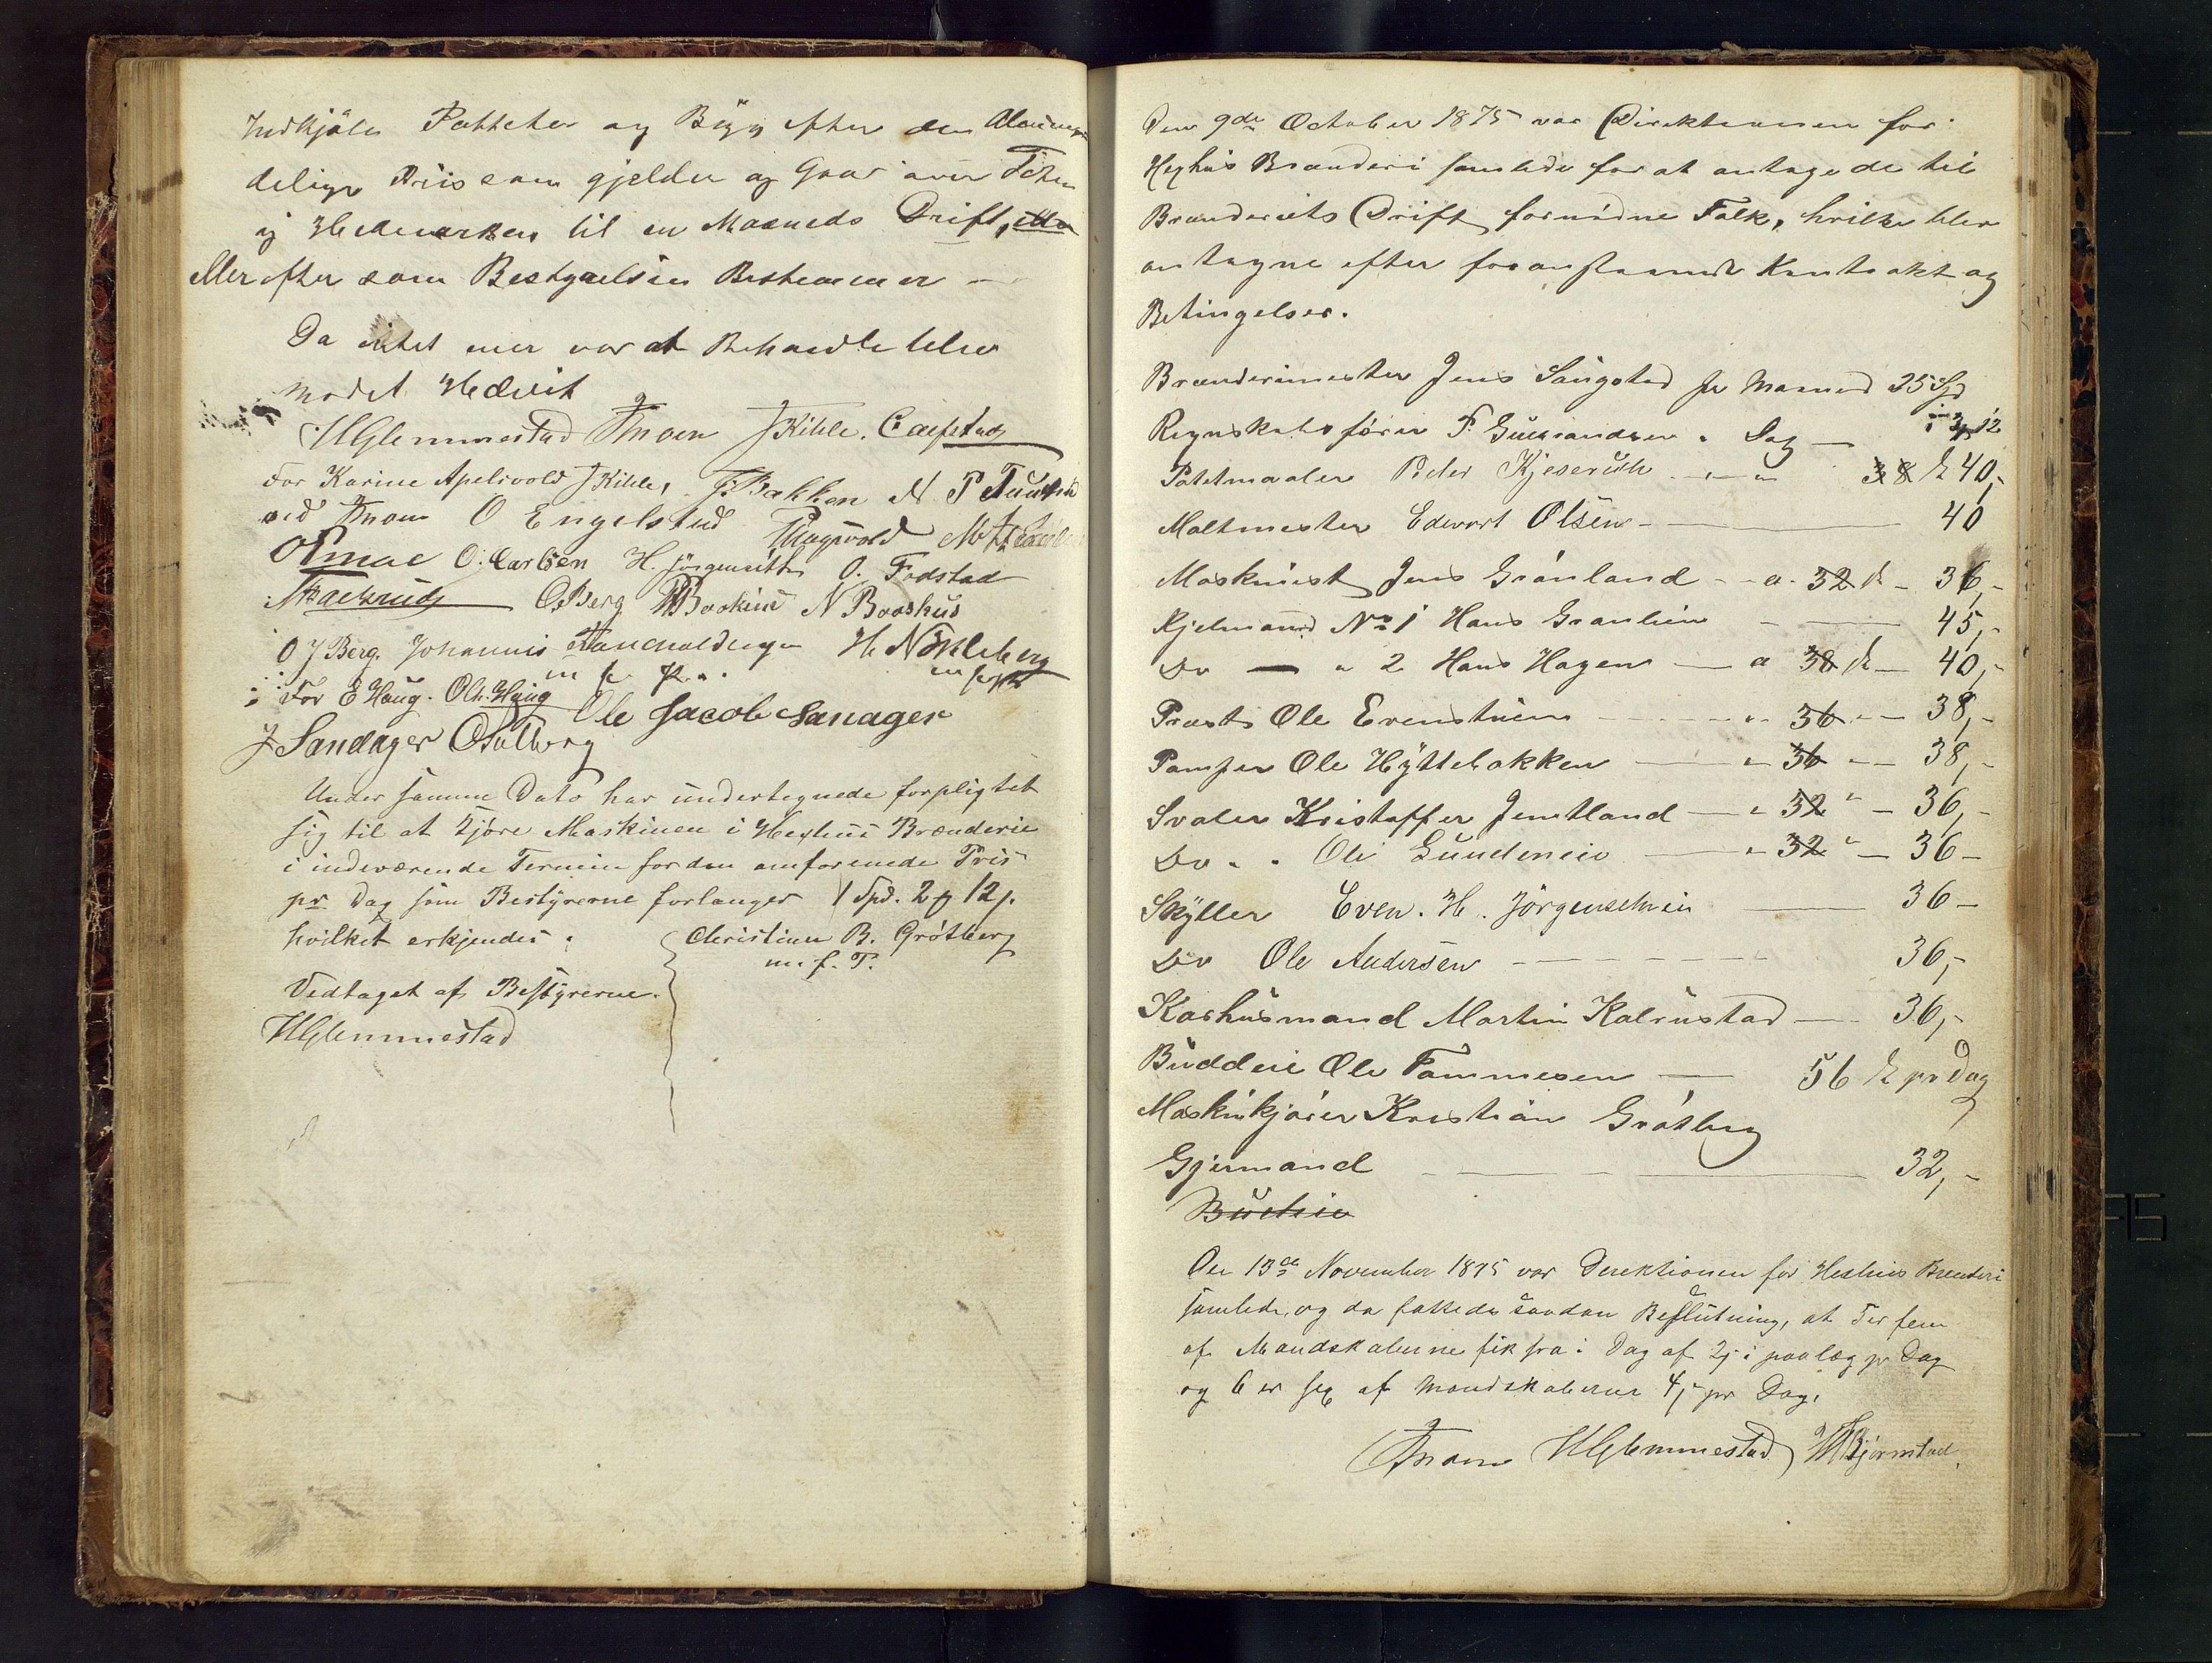 Indkjöbe Potteter og Bÿg efter den Almin
delige Priis som gjelder og Gaar over Toten
og Hedemarken til en Maaneds Drift,
eller efter som Bestyrelsen Bestemmer —
Da intet mer var at Behandle blev
Modet Hedvit
HGlemmestad Thoen JKihle.
For Karine Apelsvold JKihle, J:Bakken N P
ved Thoen O Engelstad
O. Carlsen H. O. Fodstad
O.Berg N Baashus
O J Berg. Johannis
For E Haug. Ole Haug Ole Jacob Sanager
J Sandager OSolberg
Under samme Dato har undertegnede forpligtet
sig til at kjöre Maskinen i Hexhus Brænderie
i indeværende Termin for den omforenede Pris
pr Dag som Bestÿrerne forlanger 1 Spd. 2 12
hvilket erkjendes: Christian B. Grötberg
m. f. P.
Vedtaget af Bestÿrerne.
HGlemmestad
Den 9de October 1875 var Direktionen for
Hexhus Brænderi samlede for at antage de til
Brænderiets Drift fornödne Folk, hvilke blev
antagne efter foranstaaende Kontrakt og
Betingelser.
Brænderimester Jens Sangstad pr Maaned 25 Spd
Regnskabsförer F. Gulbrandsen " Dag — 12
Potetmaaler Peder Kjeserud 38 40,-
Maltmester Edvart Olsen — 40
Maskinist Jens Grönland — a. 32 — 36,-
Kjelmand No 1 Hans Granlien — 45,-
Do — " 2 Hans Hagen — a 38 — 40,-
Prøsts Ole Evenstuen — " 36 " — 38,-
Pamper Ole Hÿttebakken — " 36 " — 38,-
Svaler Kristoffer Jemtland — " 32 " — 36,-
Do " " Ole — " 32 " — 36 –
Skÿller Even. H. — 36 –
Do Ole Andersen — 36,-
Karhusmand Martin Kalrustad — 36,-
Buddeie Ole Tommesen — 56 pr Dag
Maskinkjörer Kristian Grötberg
Gjermand — 32,-
Den 13de November 1875 var Derektionen for Hexhus Brænderi
samlede, og da fattedes saadan Beslutning, at 5er fem
af Mandskaberne fik fra i Dag af 2 i paalæg pr Dag
og 6 er sex af Mandskaberne 4 pr Dag.
Thoen HGlemmestad HBjørnstad